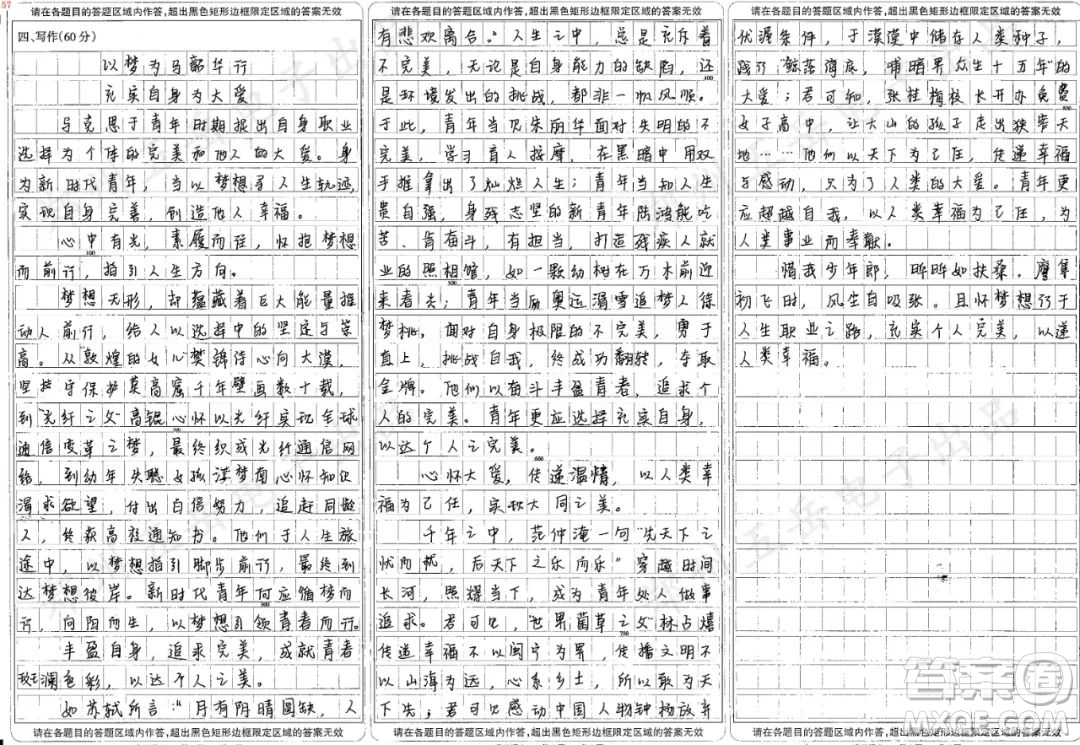 57
请在各题目的答题区域内作答,超出黑色矩形边框限定区域的答案无效
四、写作(60分)
以梦为马韶华行
充实自身为大爱
马克思于青年时期提出自身职业
选择为个体的完美和他人的大爱。身
为新时代青年,当以梦想寻人生轨迹,
实现自身完善,创造他人幸福。
心中有光,素履而往,怀抱梦想
而前行,指引人生方向。
梦想无形,却蕴藏着巨大能量推
动人前行,给人以选择中的坚定与崇
高。从敦煌的女儿樊锦诗心向大漠,
坚持守保护莫高窟千年壁画数十载,
到"光纤之父"高锟心怀以光纤实现全球
通信变革之梦,最终织成光纤通信网
络,到幼年失聪女孩谋梦南心怀知识
渴求欲望,付出百倍努力,追赶同龄
人,终获高校通知书。他们于人生旅
途中,以梦想指引脚步前行,最终到
达梦想彼岸。新时代青年何应循梦而
行,向阳而生,以梦想引领青者而行。
丰盈自身,追求完美,成就青者
斑斓色彩,以达个人之美。
如苏轼所言:"月有阴晴圆缺,人
请在各题目的答题区域内作答,超出黑色矩形边框限定区域的答案无效
请在各题目的答题区域内作答,超出黑色矩形边框限定区域的答案无效
有悲欢离合。"人生之中,总是充斥着
不完美,无论是自身能力的缺陷,还
是环境发出的挑战,都非一帆风顺。
于此,青年当见朱丽华面对失明的不
完美,学习盲人按摩,在黑暗中用双
手推拿出了灿烂人生;青年当知人生
贵自强,身残志坚的新青年陈鸿能吃
苦、肯奋斗,有担当,打造残疾人就
业的照相馆,如一颗幼树在万木前迎
来春天;青年当励奥运滑雪追梦人徐
梦桃,面对自身极限的不完美,勇于
直上,挑战自我,终成功翻转,夺取
金牌。他们以奋斗丰盈青春,追求个
人的完美。青年更应选择充实自身,
以达个人之完美。
心怀大爱,传递温情,以人类幸
福为己任,实现大同之美。
千年之中,范仲淹一句"先天下之
忧而忧,后天下之乐而乐"穿越时间
长河,照耀当下,成为青年处人做事
追求。君可见,"世界菌草之父"林占熺
传递幸福不以闽宁为界,传播文明不
以山海为远,心系乡土,所以敢为天
下先;君可见感动中国人物钟扬放弃
请在各题目的答题区域内作答,超出黑色矩形边框限定区域的答案无效
请在各题目的答题区域内作答,超出黑色矩形边框限定区域的答案无效
优渥条件,于漠漠中储存人类种子,
践行"鲸落海底,哺暗界众生十五年"的
大爱;君可知,张桂梅校长开办免费
女子高中,让大山的孩子走出狭窄天
地……他们以天下为己任,传递幸福
与感动,只为了人类的大爱。青年更
应超越自我,以人类幸福为己任,为
人类事业而奉献。
惜我少年郎,晔晔如扶桑。鹰隼
初飞时,风生自吸张。且怀梦想行于
人生职业之路,充实个人完美,以递
人类幸福。
请在各题目的答题区域内作答,超出黑色矩形边框限定区域的答案无效
答案港
MXQE.COM